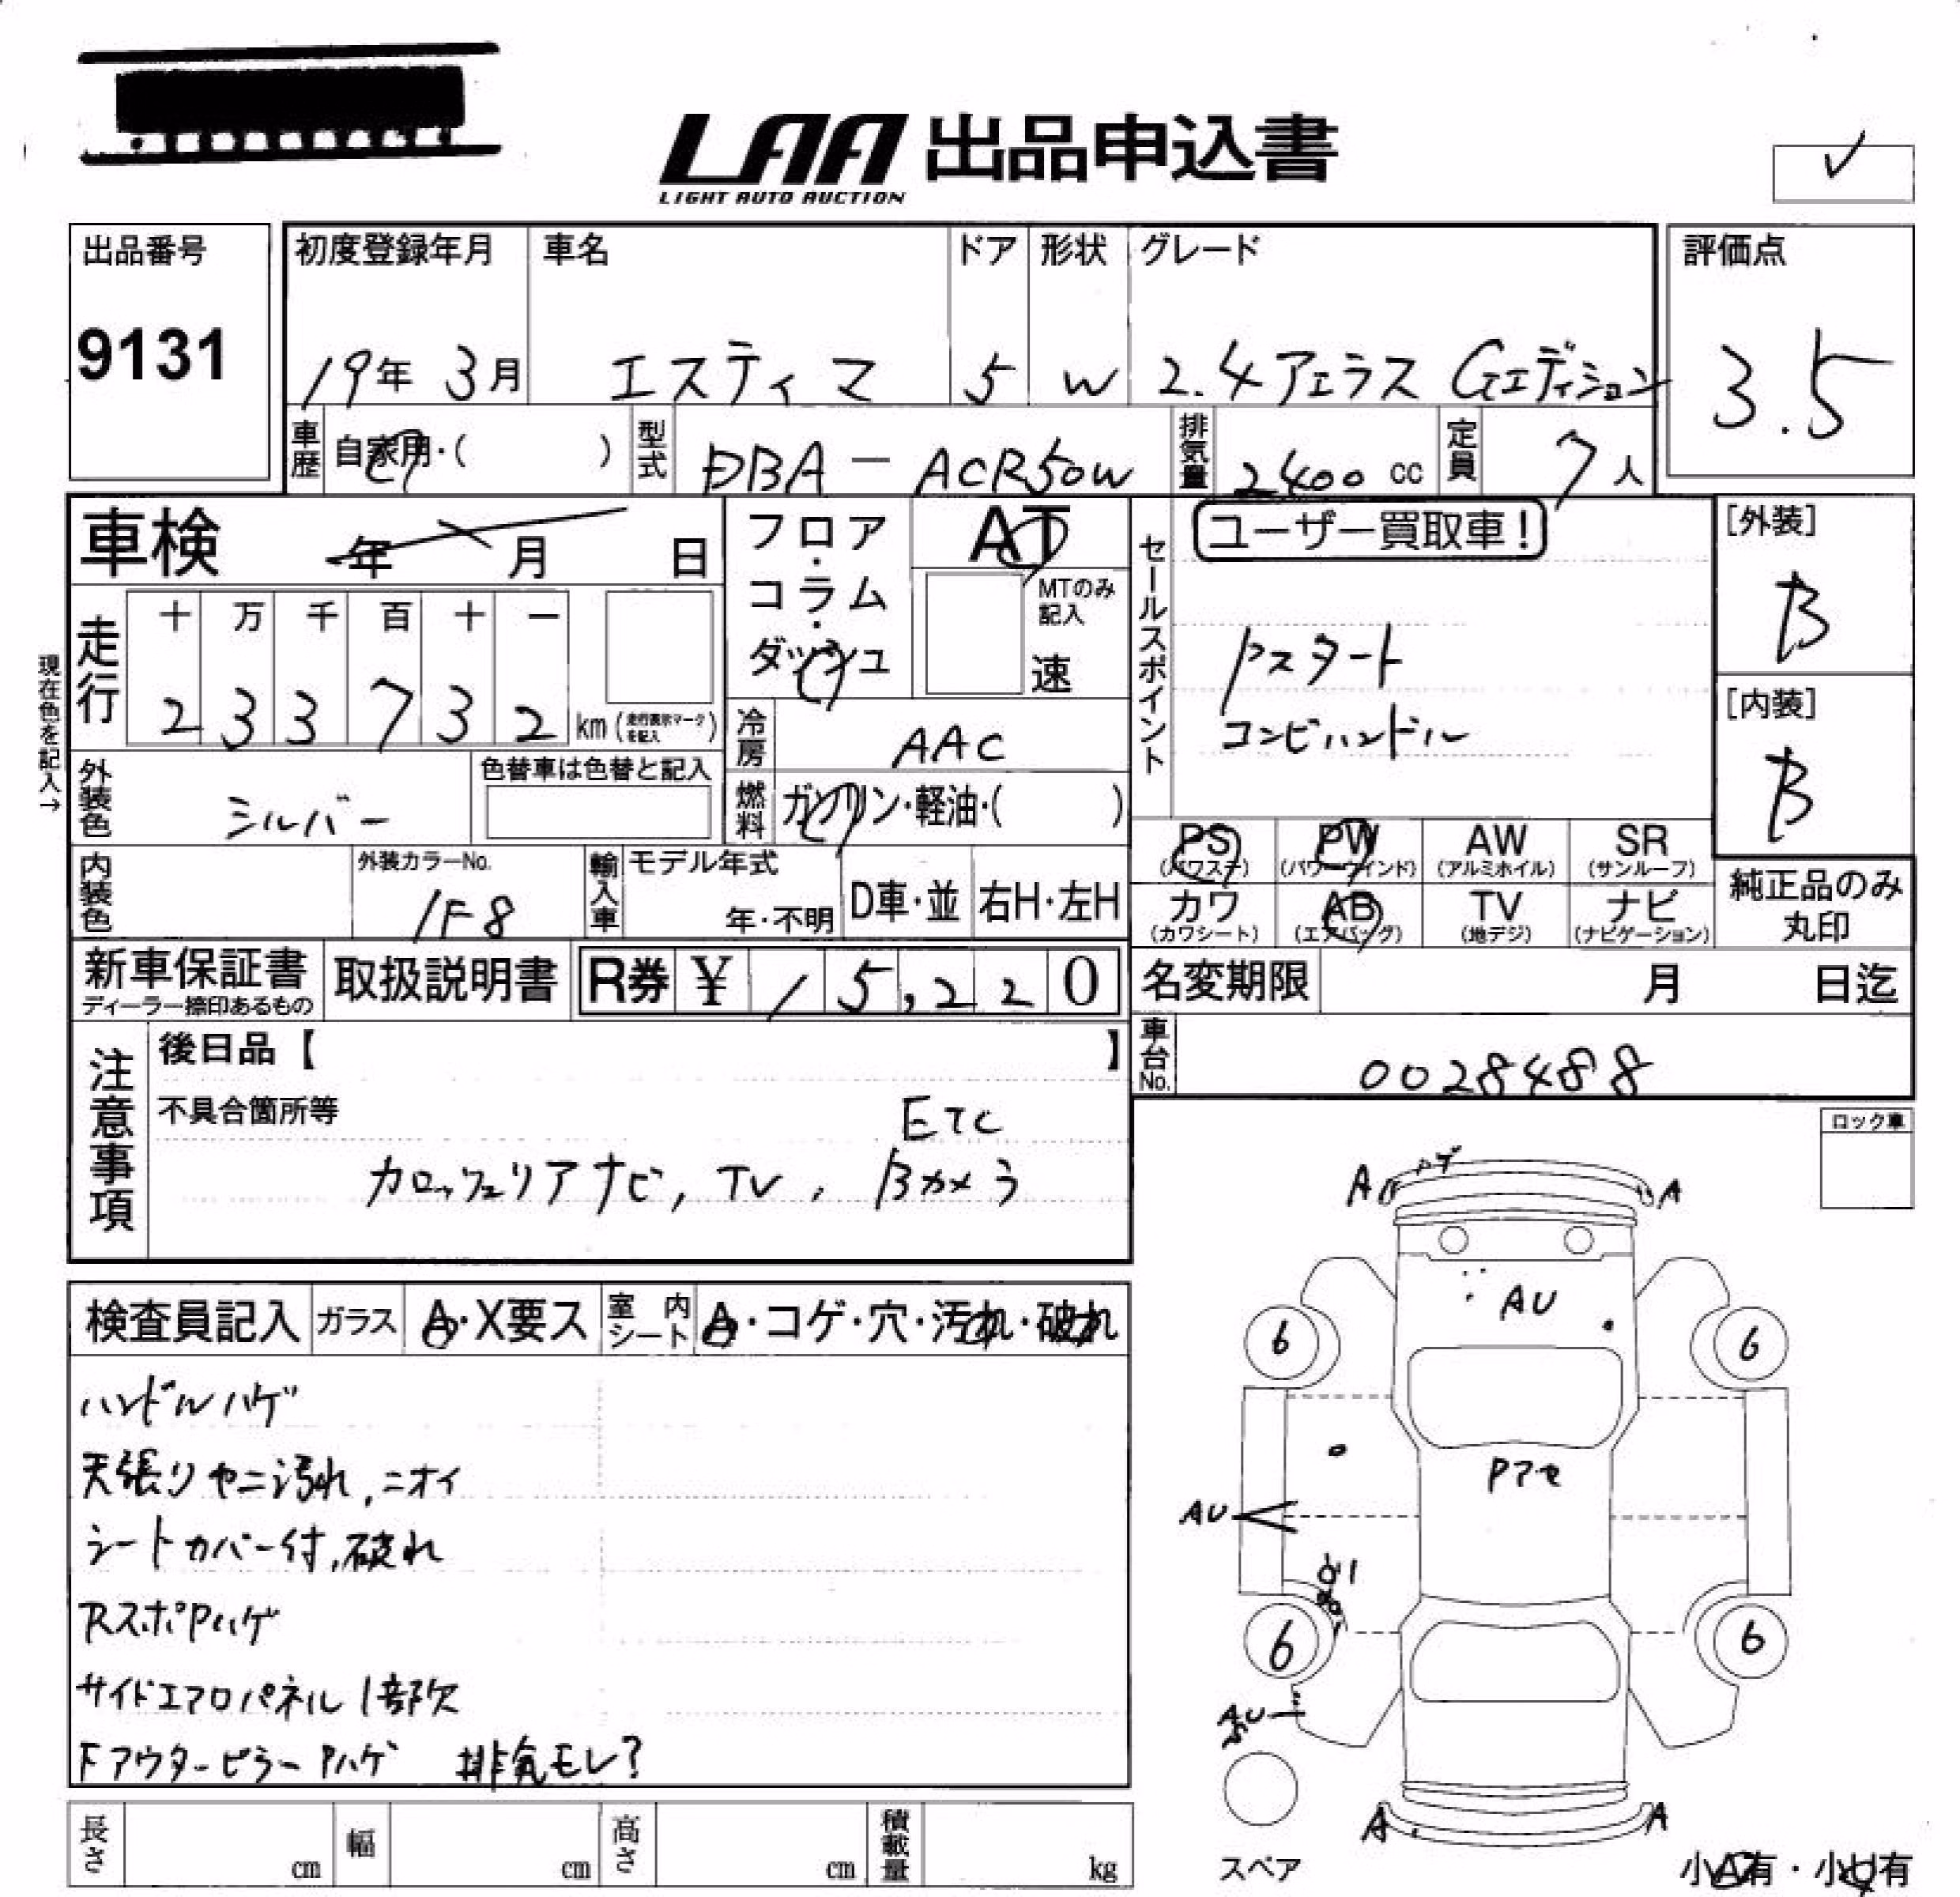 LAA 出品申込書
LIGHT AUTO AUCTION
✓
出品番号
9131
初度登録年月
19年 3月
車名
エスティマ
ドア
5
形状
W
グレード
2.4アエラス Gエディション
評価点
3.5
車歴
自家用・( )
型式
DBA-ACR50W
排気量
2400 cc
定員
7人
車検
年 月 日
フロア・コラム・ダッシュ
AT
MTのみ記入
速
セールスポイント
ユーザー買取車!
Pスタート
コンビハンドル
[外装]
B
[内装]
B
現在色を記入→
走行
十 万 千 百 十 一
2 3 3 7 3 2 km
(走行表示マークを記入)
冷房
AAC
燃料
ガソリン・軽油・( )
外装色
シルバー
色替車は色替と記入
内装色
外装カラーNo.
1F8
輸入車
モデル年式
年・不明
D車・並
右H・左H
PS (パワステ)
PW (パワーウインド)
AW (アルミホイル)
SR (サンルーフ)
カワ (カワシート)
AB (エアバッグ)
TV (地デジ)
ナビ (ナビゲーション)
純正品のみ
丸印
新車保証書
ディーラー捺印あるもの
取扱説明書
R券 ¥ 15,220
名変期限 月 日迄
車台No.
0028488
注意事項
後日品【 】
不具合箇所等
ETC
カロッツェリアナビ, TV, Bカメラ
ロック車
検査員記入
ガラス
A・X要ス
室内シート
A・コゲ・穴・汚れ・破れ
ハンドルハゲ
天張りヤニ汚れ,ニオイ
シートカバー付,破れ
RスポPハゲ
サイドエアロパネル1部欠
FアウターピラーPハゲ 排気モレ?
A ハゲ A
AU
6 6
Pアセ
AU
6 6
AU
A A
スペア
小A有・小U有
長さ cm
幅 cm
高さ cm
積載量 kg